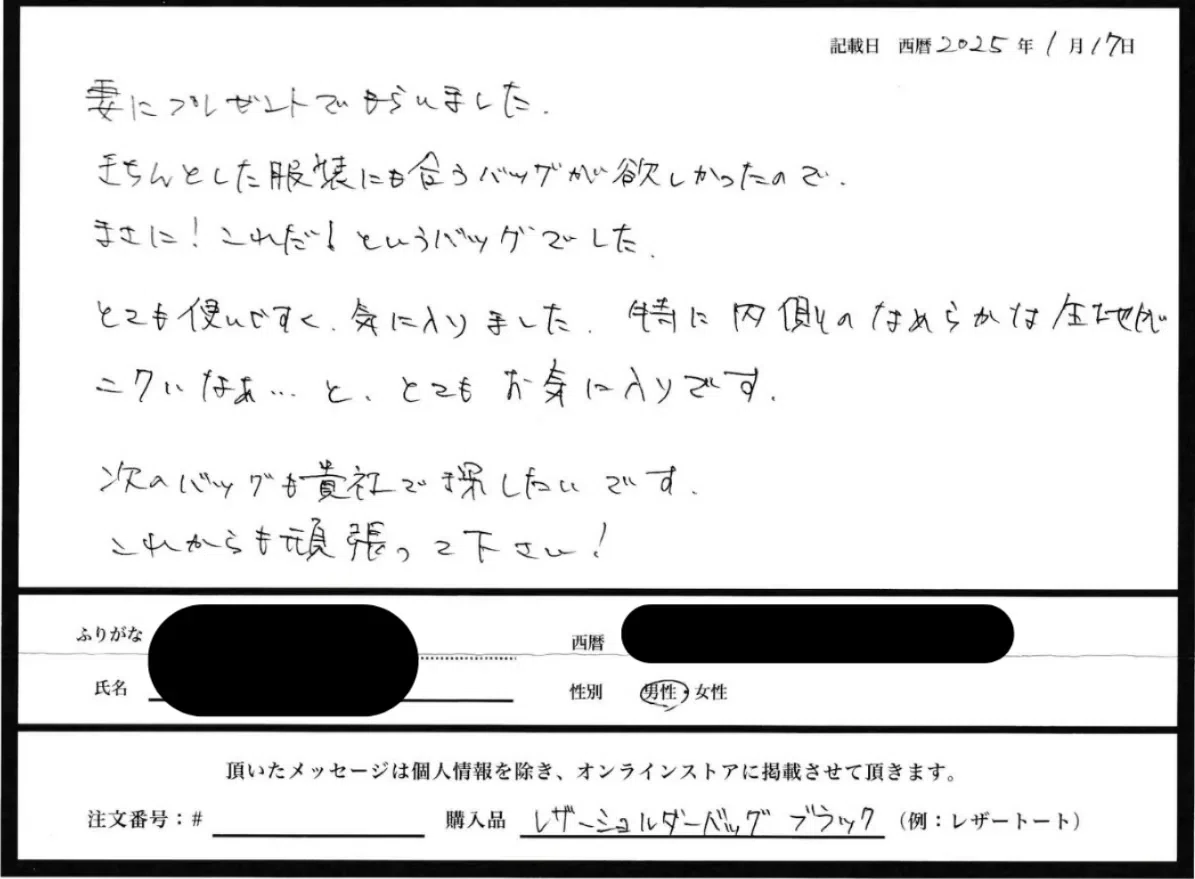 記載日 西暦 2025 年 1 月 17 日
妻にプレゼントでもらいました.
きちんとした服装にも合うバッグが欲しかったので.
まさに!これだ!というバッグでした.
とても使いやすく.気に入りました.特に内側のなめらかな生地が
ニクいなぁ…と、とてもお気に入りです.
次のバッグも貴社で探したいです.
これからも頑張って下さい!
ふりがな
西暦
氏名
性別 男性・女性
頂いたメッセージは個人情報を除き、オンラインストアに掲載させて頂きます。
注文番号:# 購入品 レザーショルダーバッグ ブラック (例:レザートート)